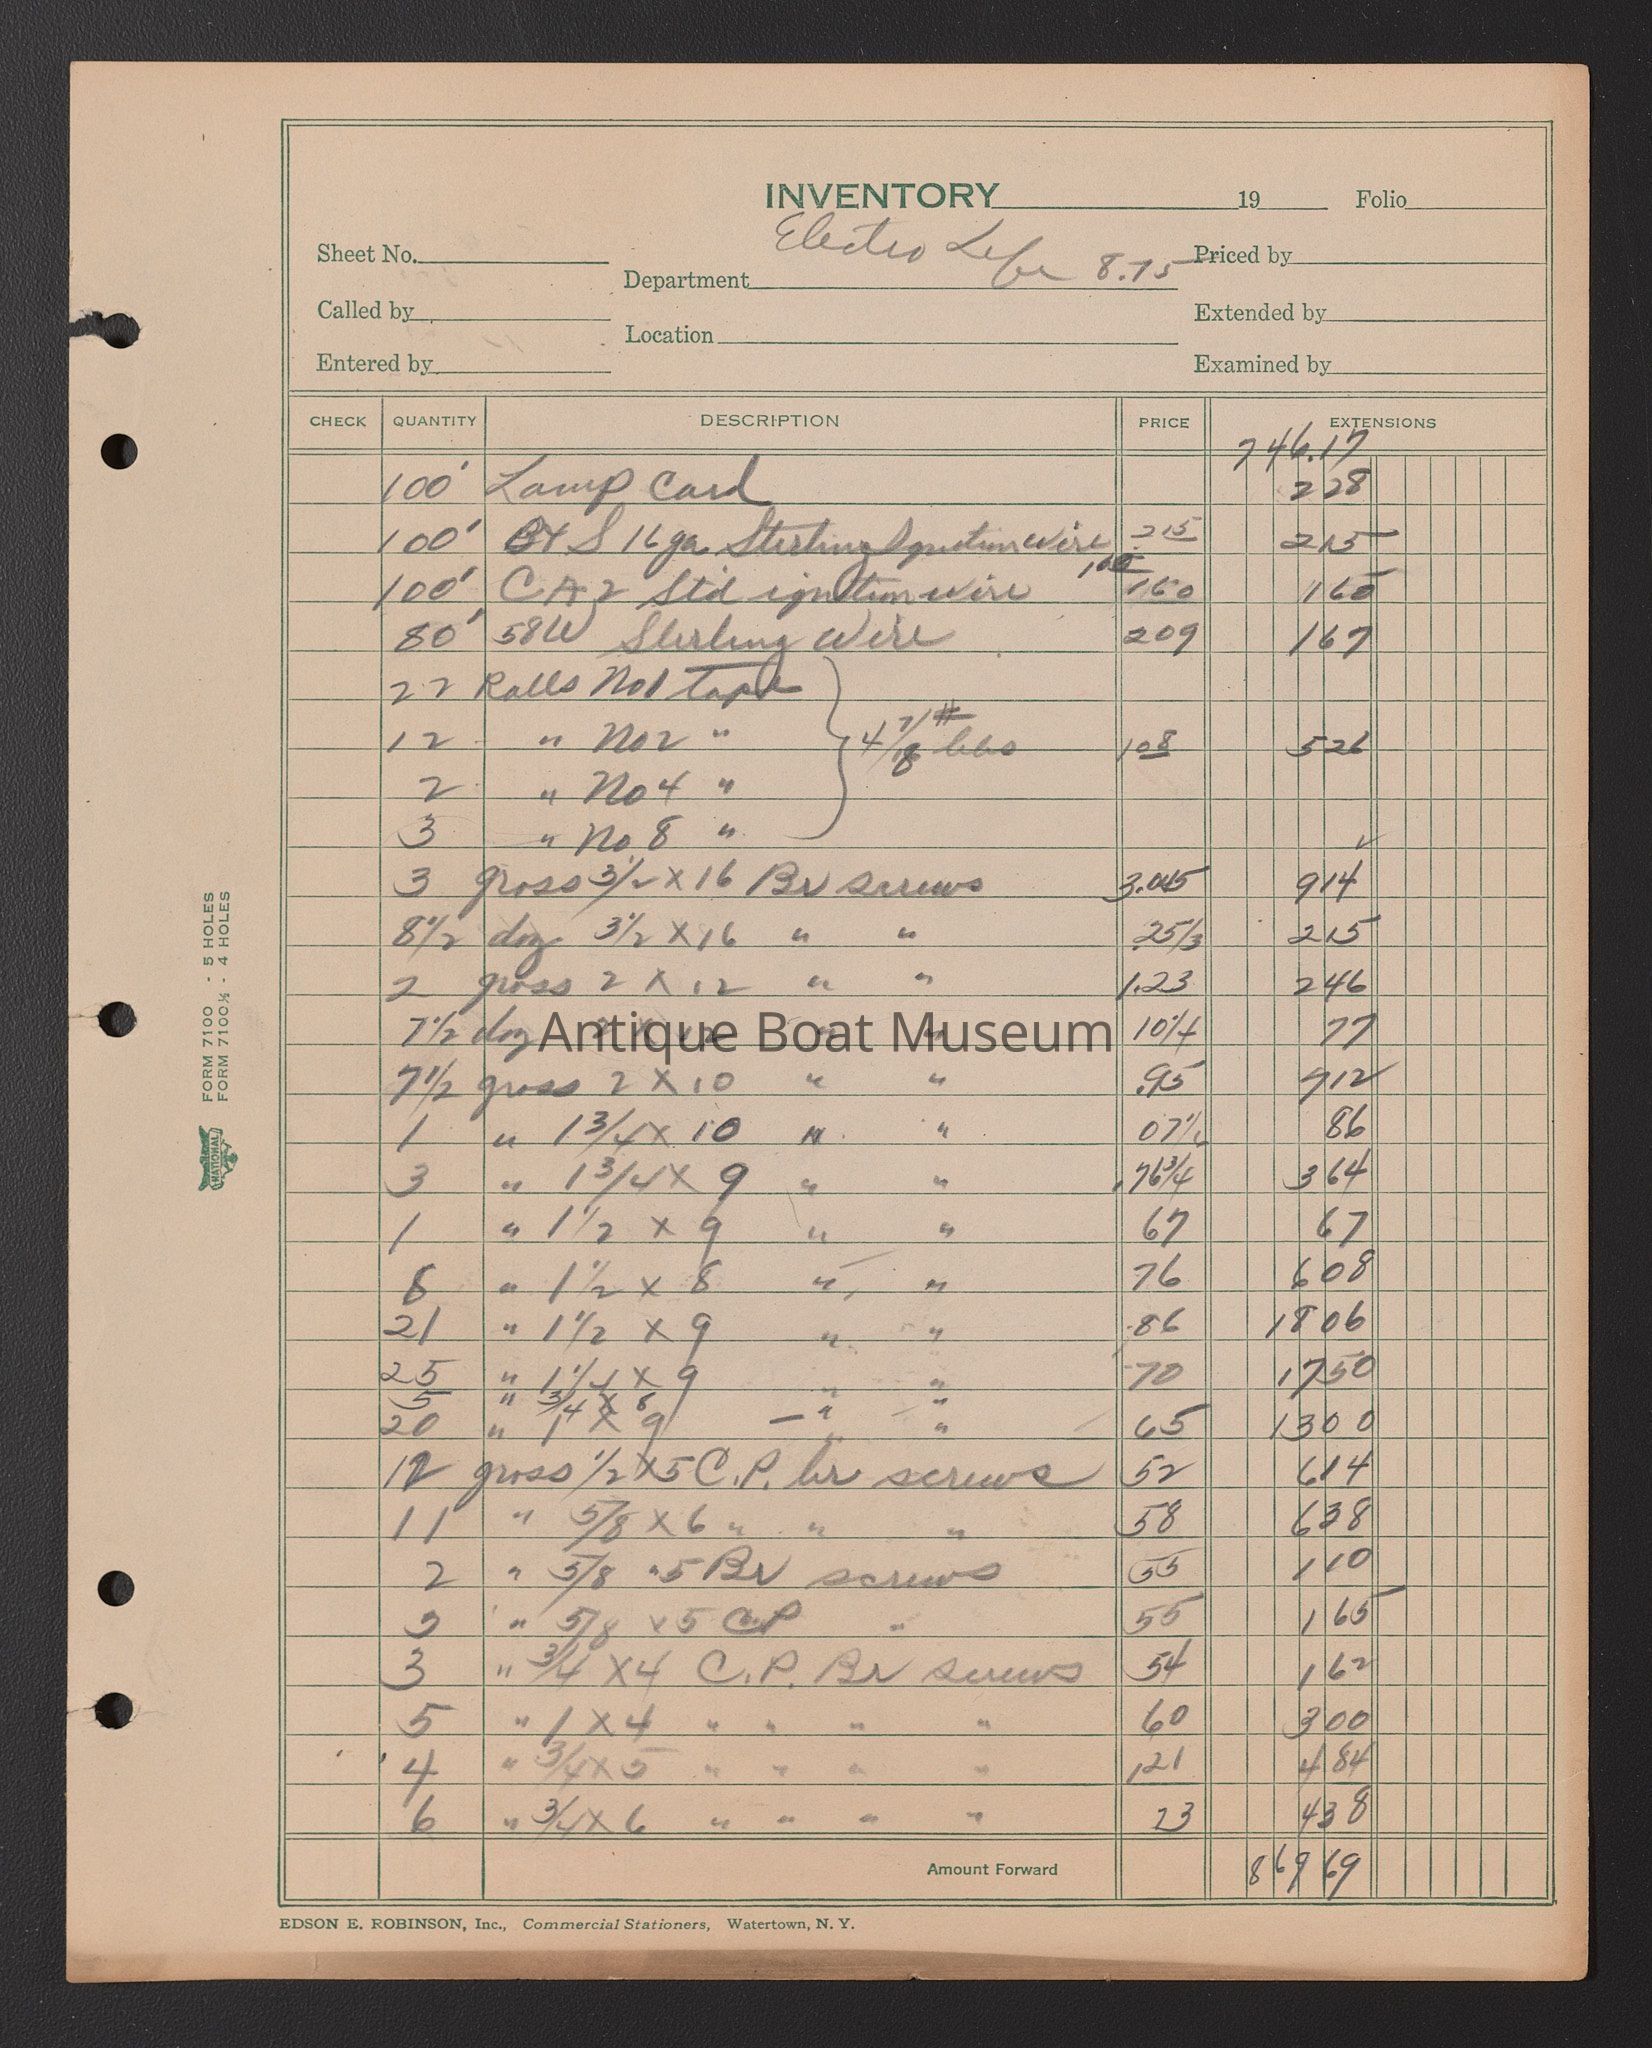 INVENTORY 19 Folio
Electro 8.75
Sheet No. Department Priced by
Called by Location Extended by
Entered by Examined by
CHECK QUANTITY DESCRIPTION PRICE EXTENSIONS
746.17
100' Lamp Cord 228
100' B+S 16 ga. Sterling Ignition Wire 215 215
160
100' C A 2 Std ignition wire 160 160
80' 58W Sterling Wire 209 167
22 Rolls No1 Tape
12 " No2 " 4 7/18 # lbs 108 526
2 " No 4 "
3 " No 8 "
3 gross 3 1/2 X 16 Br screws 3.045 914
8 1/2 doz 3 1/2 X 16 " " .25 1/3 215
2 gross 2 X 12 " " 1.23 246
7 1/2 doz 2 X 12 " " 10 1/4 77
7 1/2 gross 2 X 10 " " .95 712
1 " 1 3/4 X 10 " " 86
3 " 1 3/4 X 9 " " .76 3/4 364
1 " 1 1/2 X 9 " " 67 67
8 " 1 1/2 X 8 " " 76 608
21 " 1 1/2 X 9 " " .86 1806
25 " 1 1/4 X 9 " " .70 1750
5 " 3/4 X 8 " "
20 " 1 X 9 " " 65 1300
12 gross 1/2 X 5 C.P. br screws 52 614
11 " 5/8 X 6 " " " 58 638
2 " 5/8 "5 Br screws 55 110
" 5/8 X 5 CP " 55 165
3 " 3/4 X 4 C.P. Br screws 54 162
5 " 1 X 4 " " " " 60 300
4 " 3/4 X 5 " " " " 121 484
6 " 3/4 X 6 " " " " 23 438
Amount Forward 869 69
EDSON E. ROBINSON, Inc., Commercial Stationers, Watertown, N. Y.
FORM 7100 - 5 HOLES
FORM 7100½ - 4 HOLES
NATIONAL
Antique Boat Museum